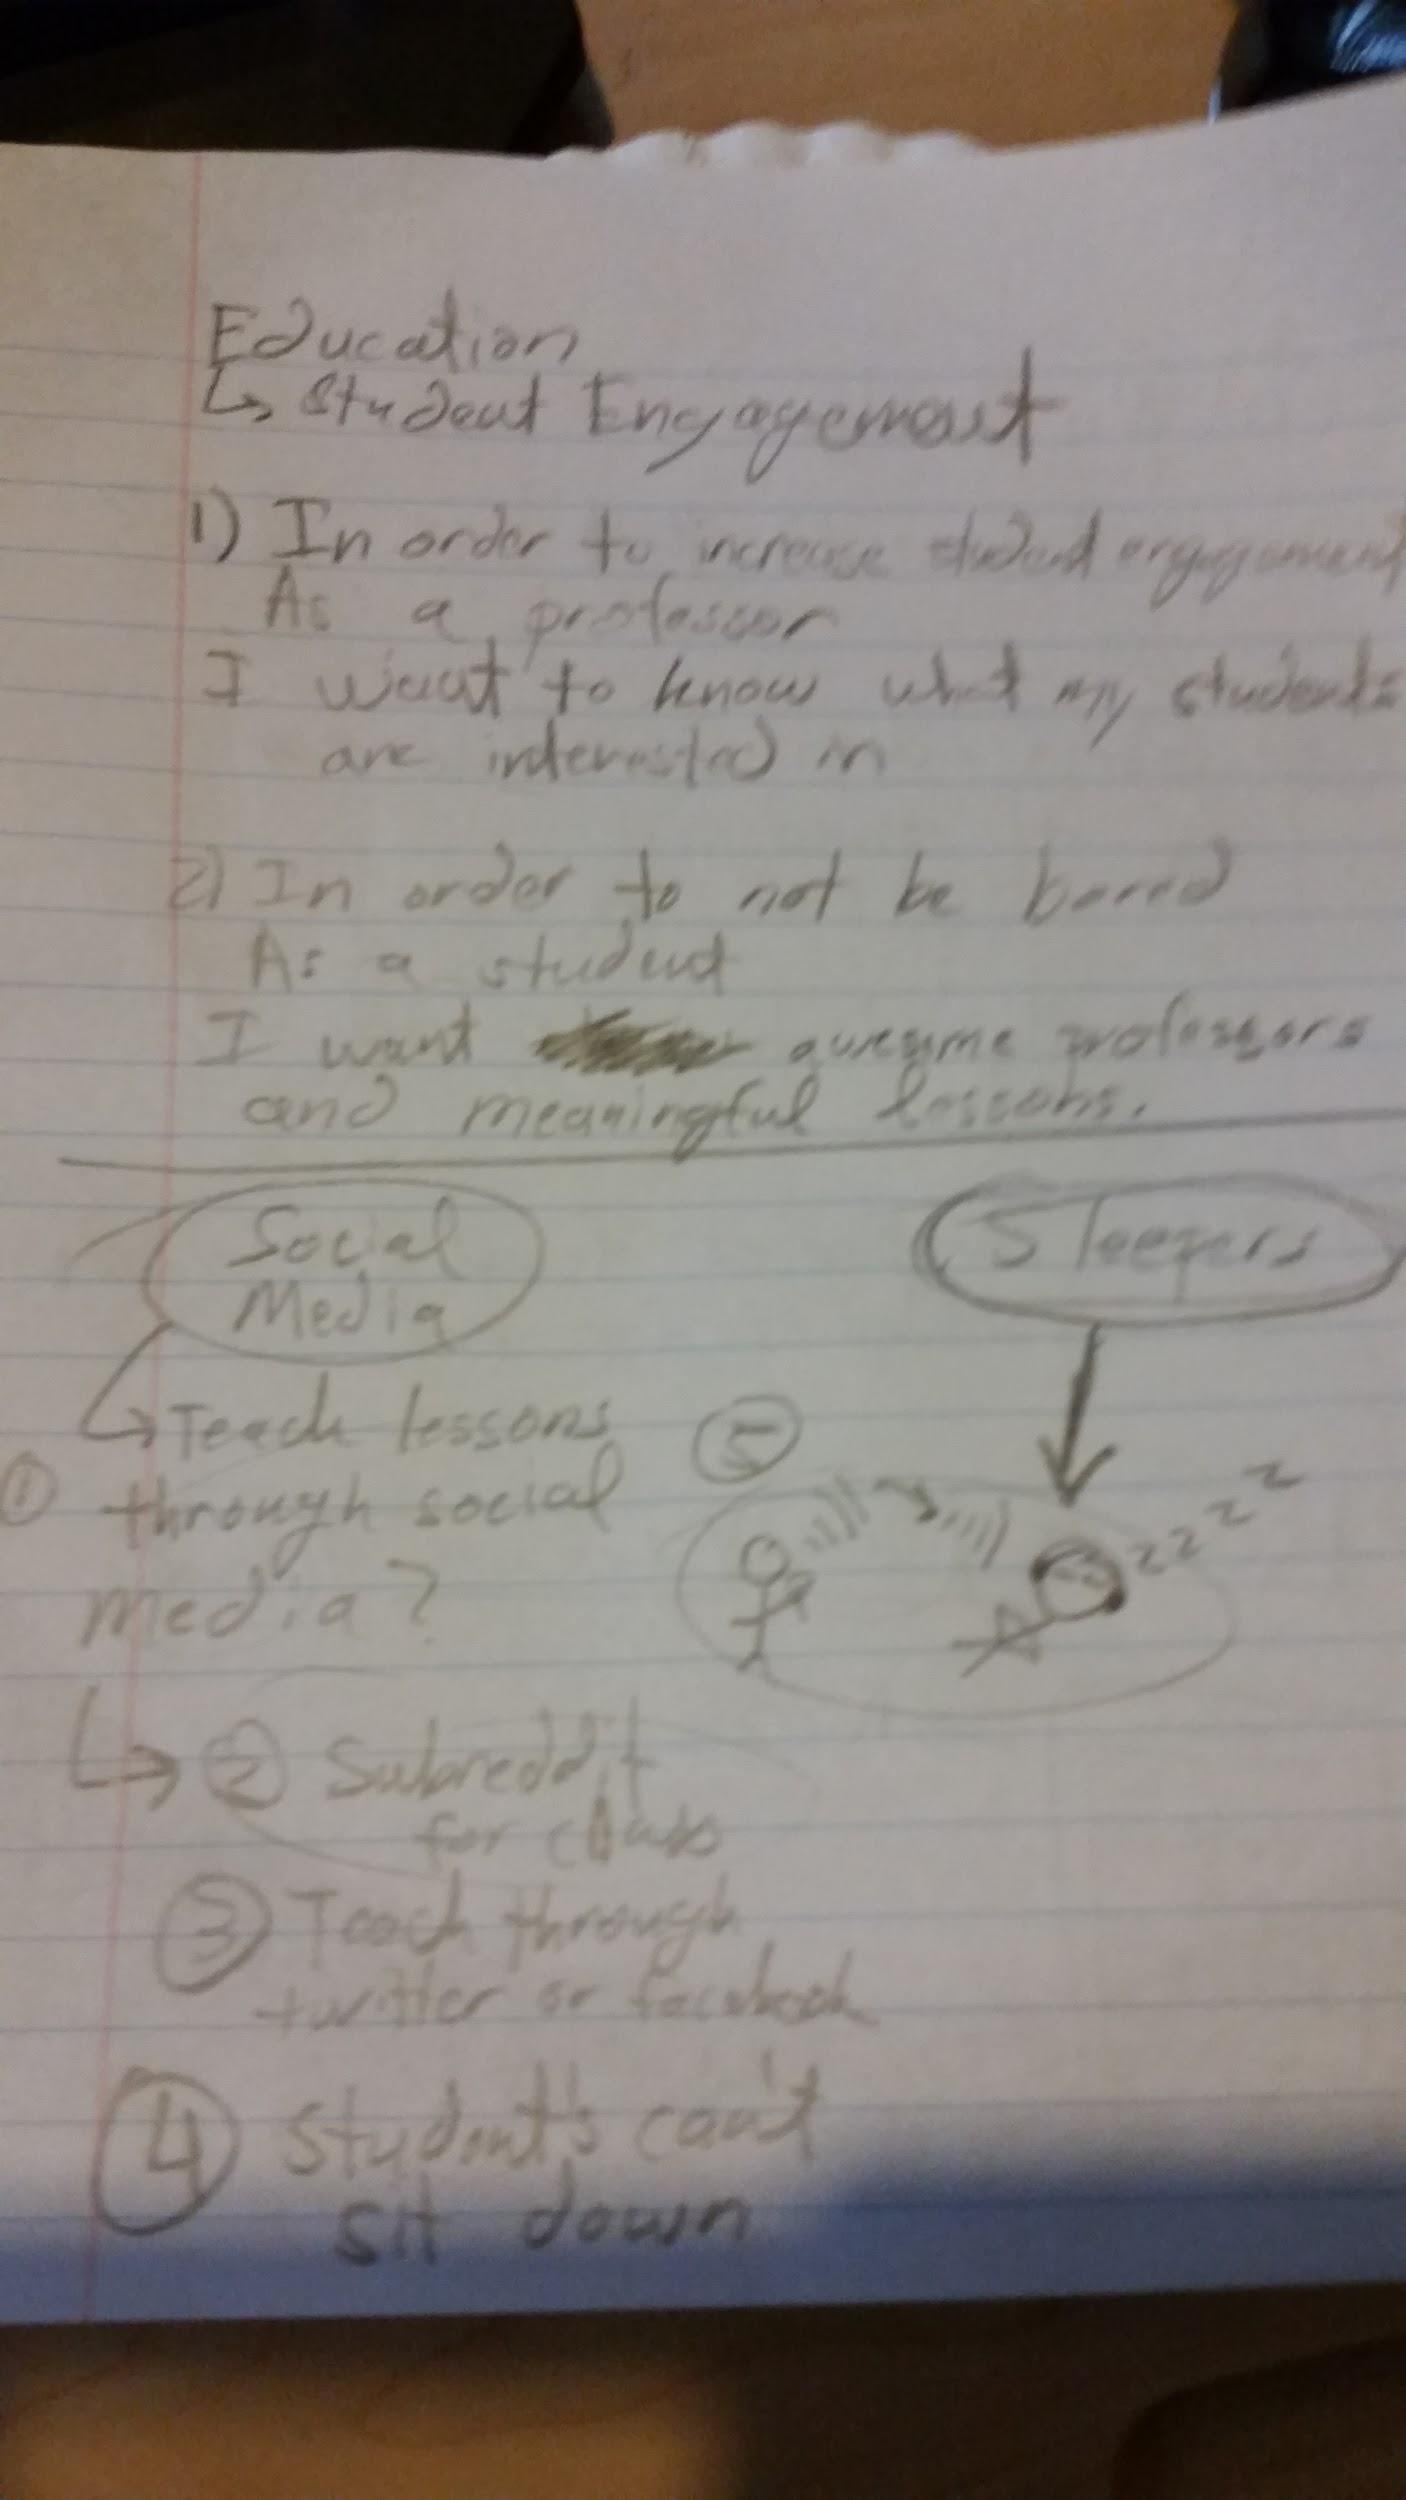 Education
↳ Student Engagement
1) In order to increase student engagement
As a professor
I want to know what my students
are interested in
2) In order to not be bored
As a student
I want awesome professors
and meaningful lessons.
Social
Media
↳ Teach lessons
① through social
media?
↳ ② Subreddit
for class
③ Teach through
twitter or facebook
④ Student's can't
sit down
Sleepers
⑤
zzzzz